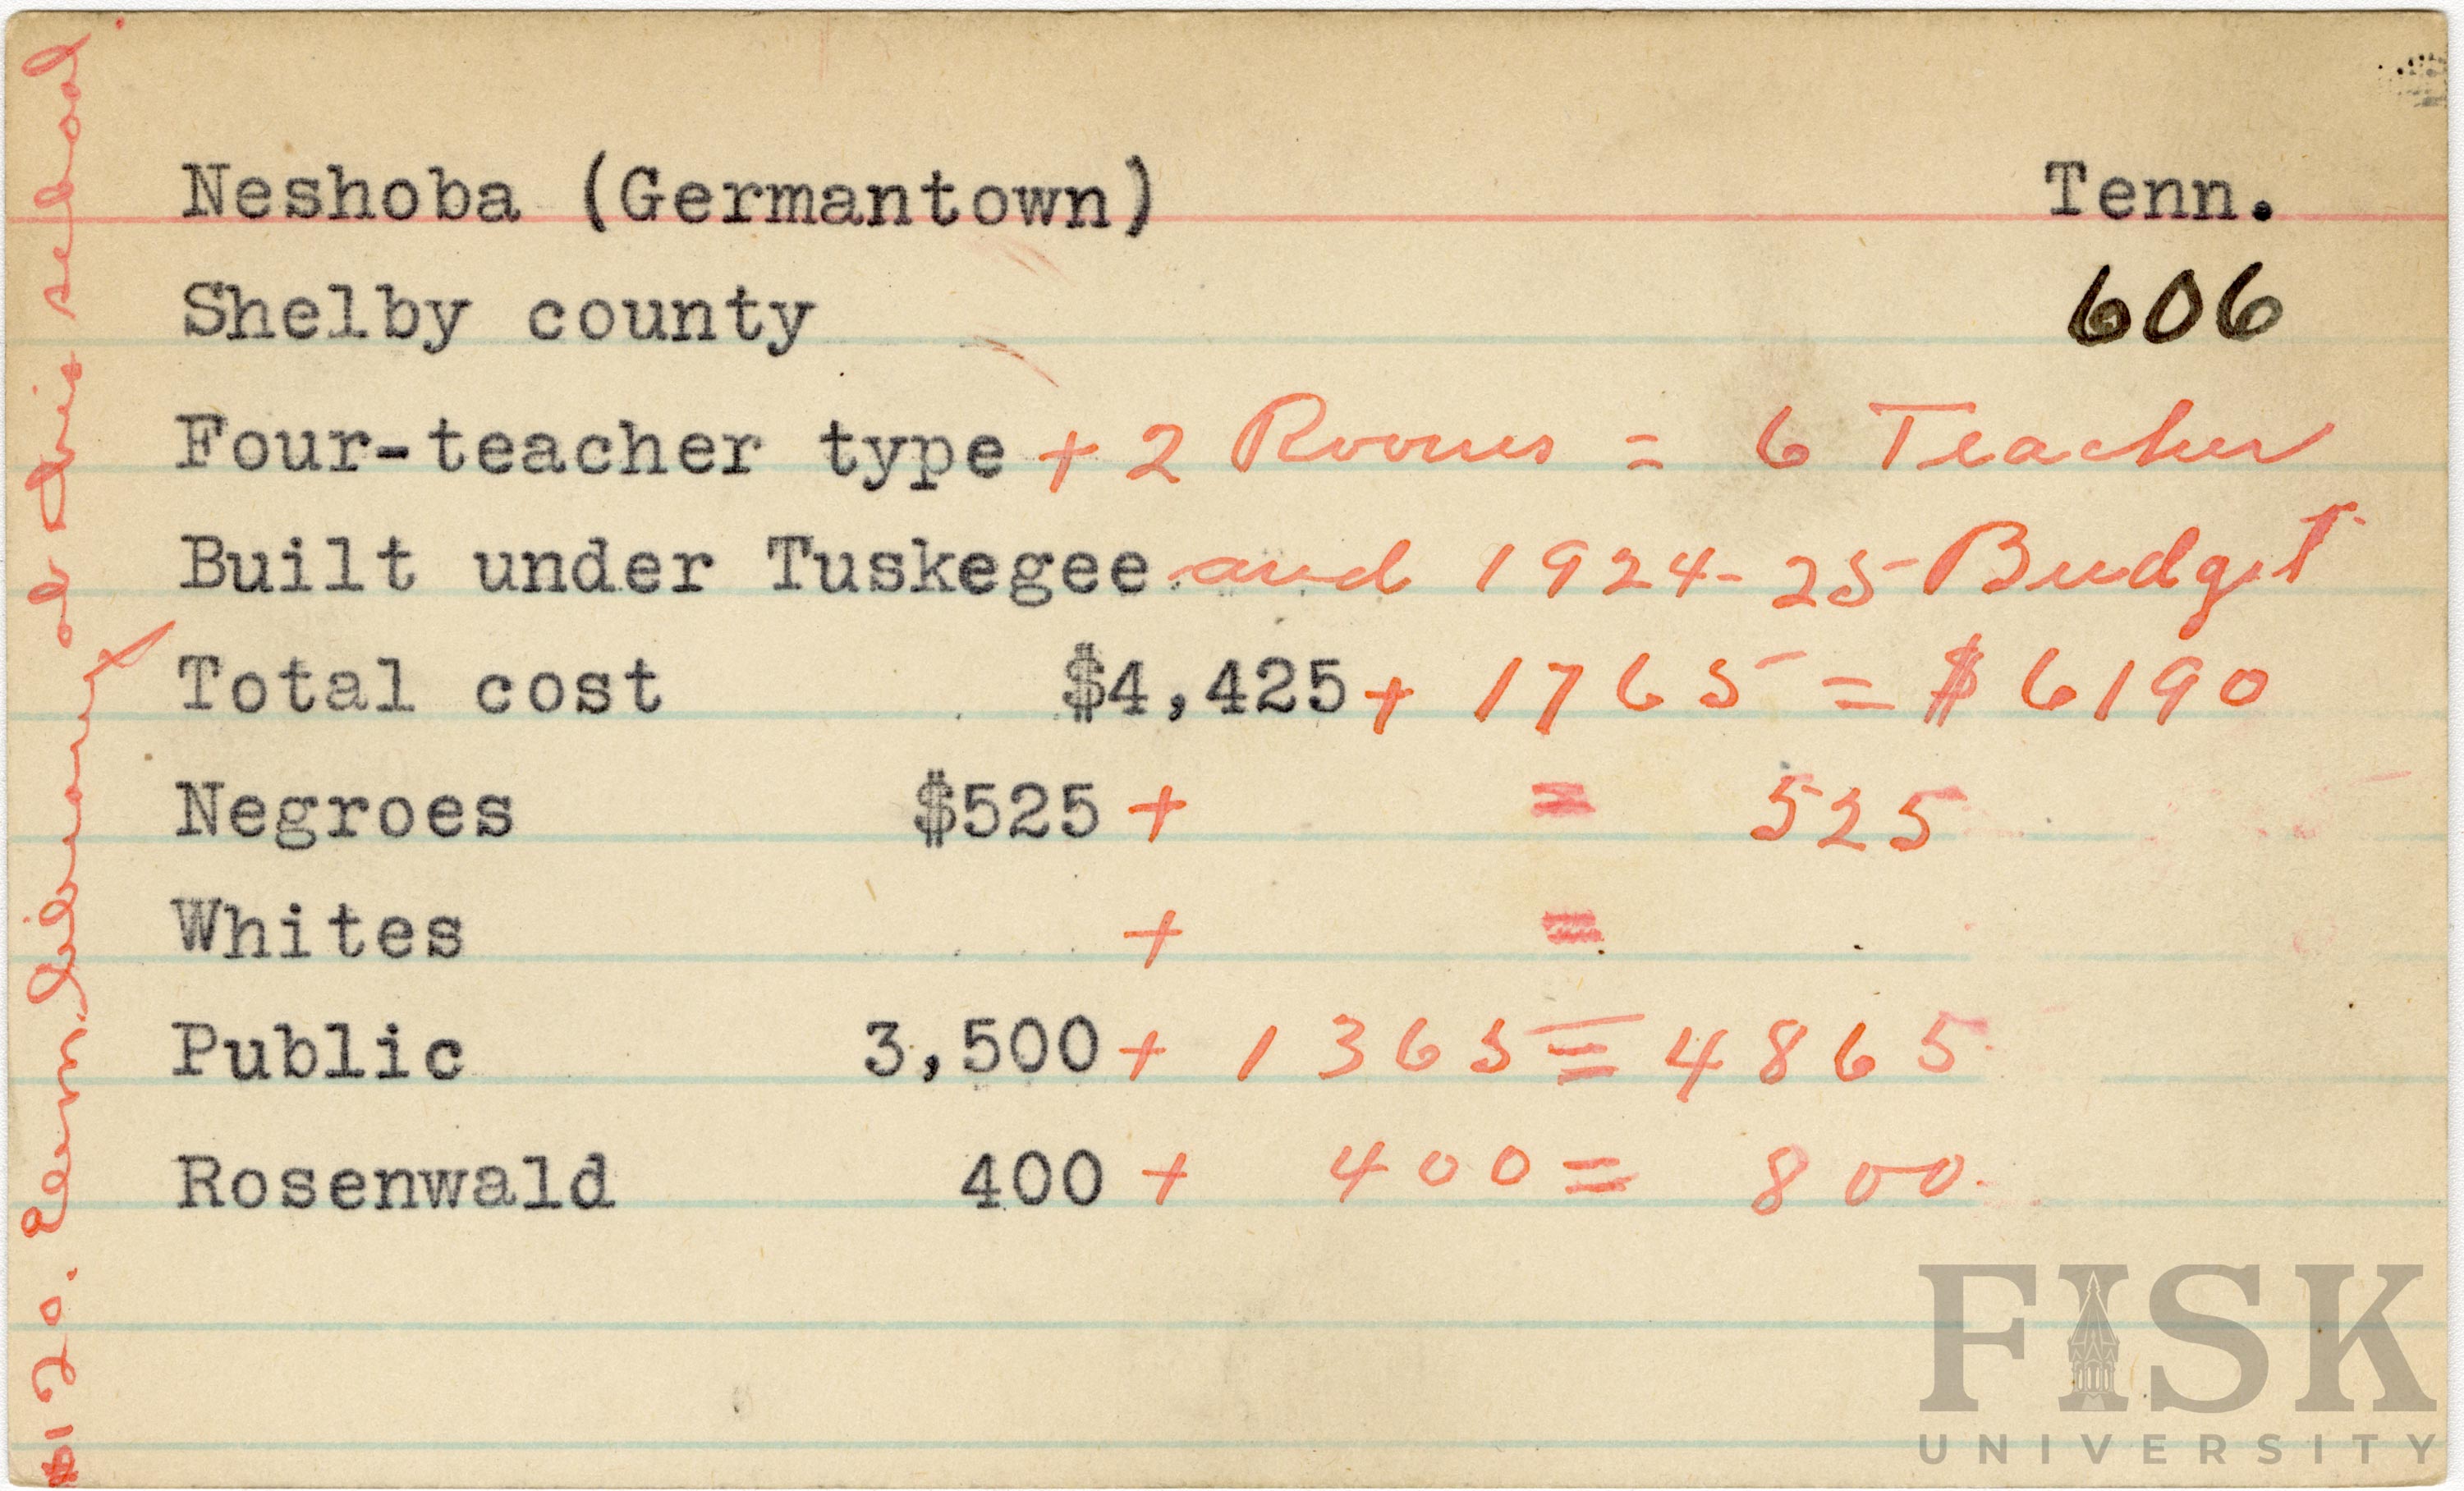 Neshoba (Germantown) Tenn.
Shelby county 606
Four-teacher type + 2 Rooms = 6 Teacher
Built under Tuskegee and 1924-25 Budget
Total cost $4,425 + 1765 = $6190
Negroes $525 + = 525
Whites + =
Public 3,500 + 1365 = 4865
Rosenwald 400 + 400 = 800.
$120. Elem. Library at this school.
FISK
UNIVERSITY